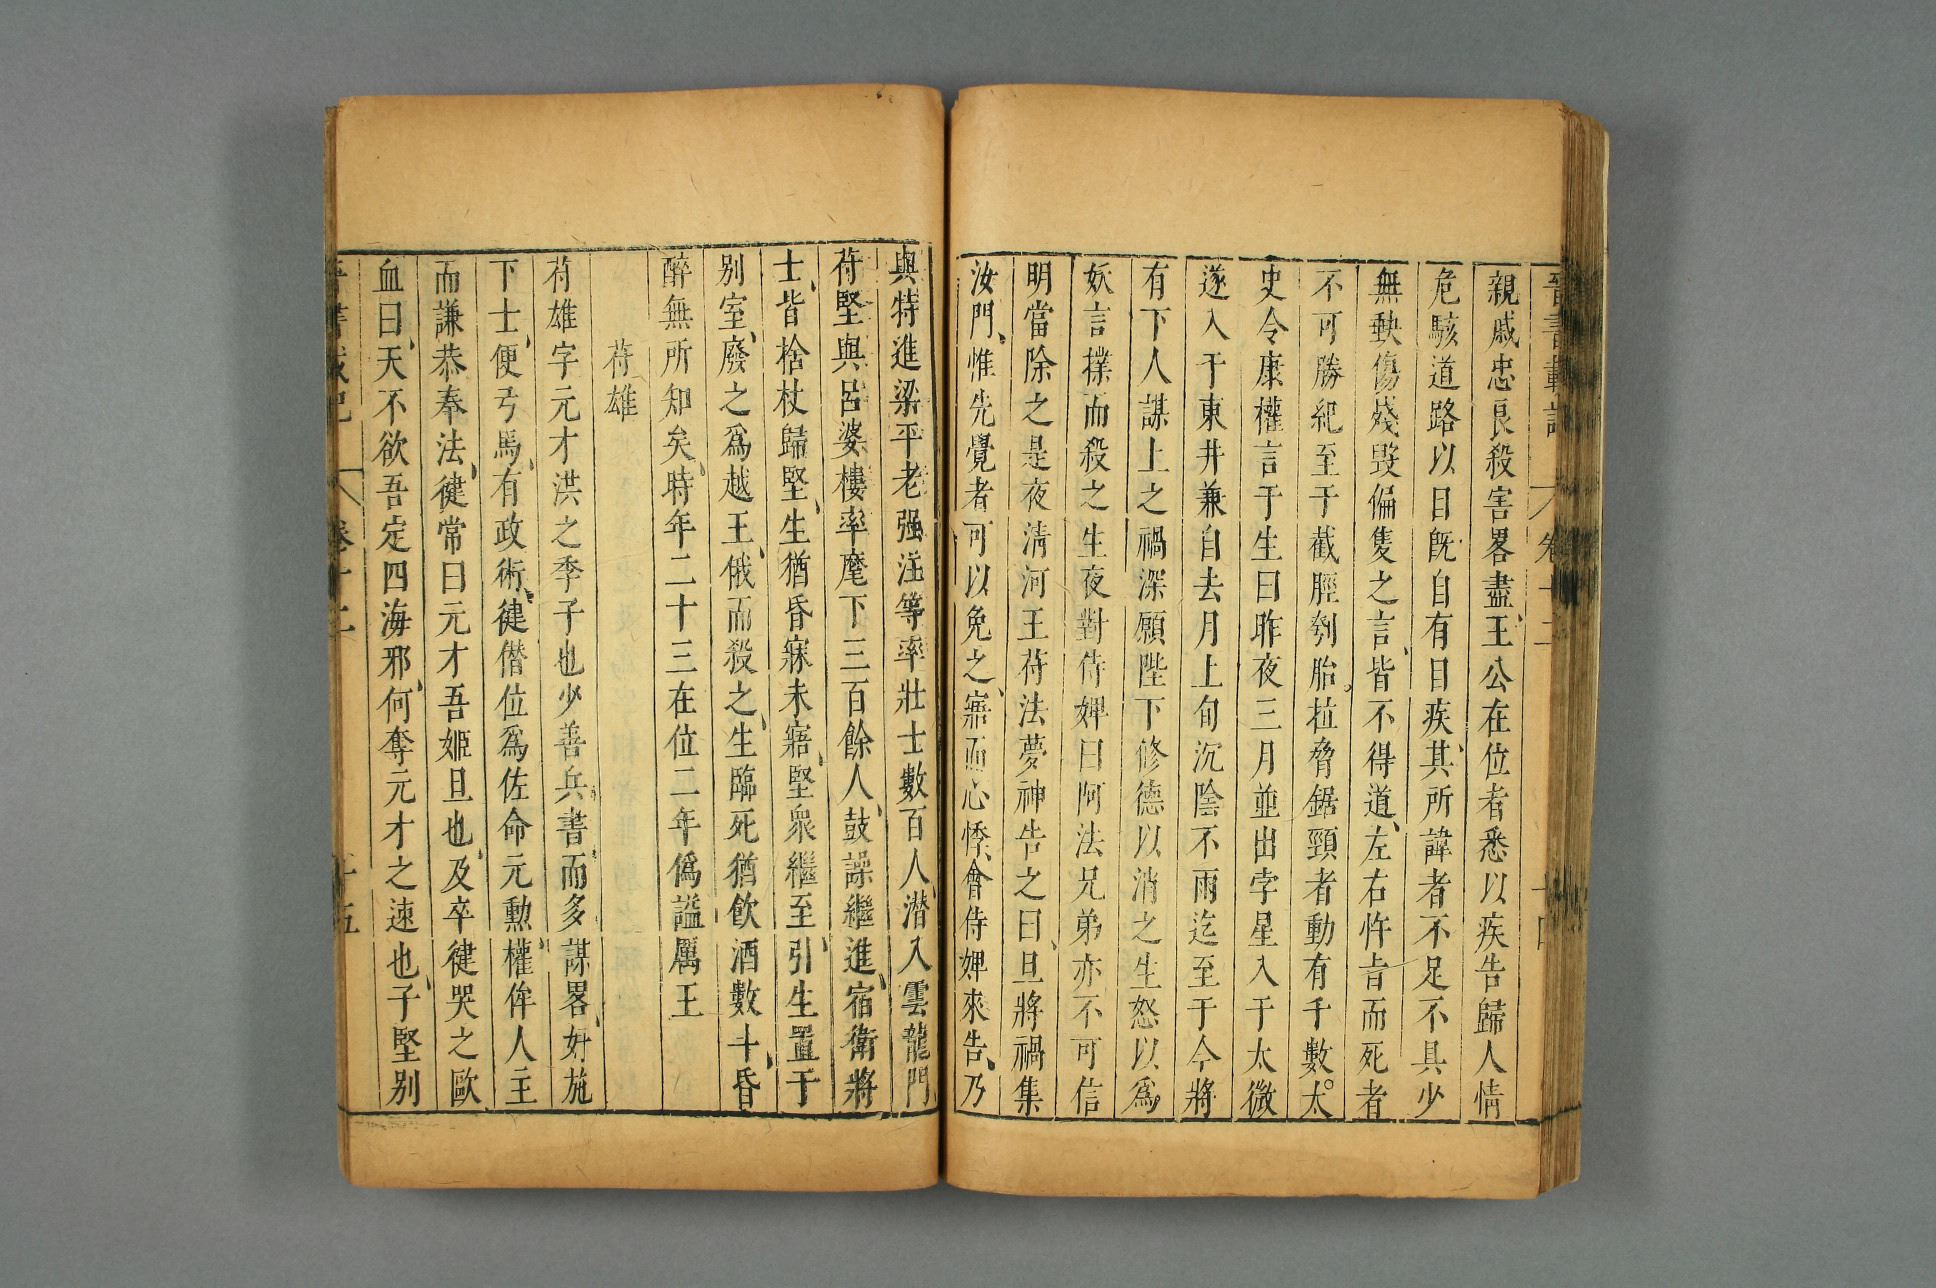 晉書載記 卷十二 十四
親戚忠良殺害畧盡王公在位者悉以疾告歸人情
危駭道路以目旣自有目疾其所諱者不足不具少
無缺傷殘毀偏隻之言皆不得道左右忤旨而死者
不可勝紀至于截脛刳胎拉脅鋸頸者動有千數太
史令康權言于生曰昨夜三月並出孛星入于太微
遂入于東井兼自去月上旬沉陰不雨迄至于今將
有下人謀上之禍深願陛下修德以消之生怒以爲
妖言撲而殺之生夜對侍婢曰阿法兄弟亦不可信
明當除之是夜清河王苻法夢神告之曰旦將禍集
汝門惟先覺者可以免之寤而心悸會侍婢來告乃
與特進梁平老强汪等率壯士數百人潛入雲龍門
苻堅與呂婆樓率麾下三百餘人鼓譟繼進宿衛將
士皆捨杖歸堅生猶昏寐未寤堅衆繼至引生置于
别室廢之爲越王俄而殺之生臨死猶飮酒數斗昏
醉無所知矣時年二十三在位二年僞謚厲王
苻雄
苻雄字元才洪之季子也少善兵書而多謀畧好施
下士便弓馬有政術健僭位爲佐命元勳權侔人主
而謙恭奉法健常曰元才吾姬旦也及卒健哭之歐
血曰天不欲吾定四海邪何奪元才之速也子堅别
晉書載記 卷十二 十五